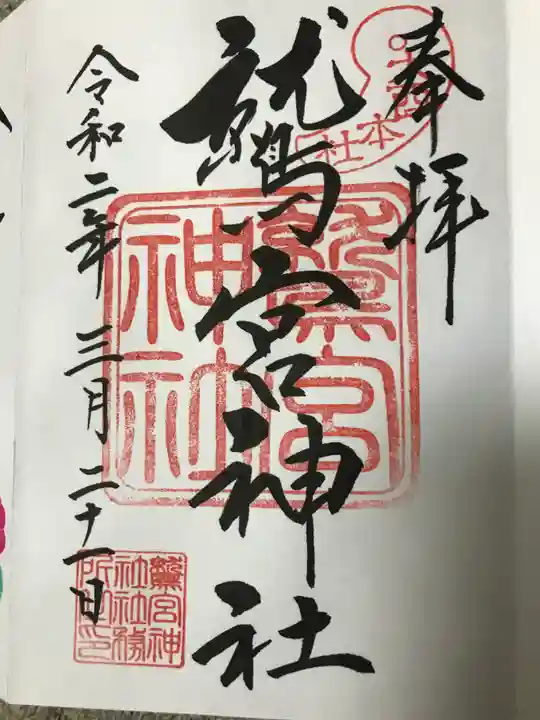 奉拝
本社
鷲宮神社
鷲宮神社
令和二年三月二十一日
鷲宮神
社社務
所之印